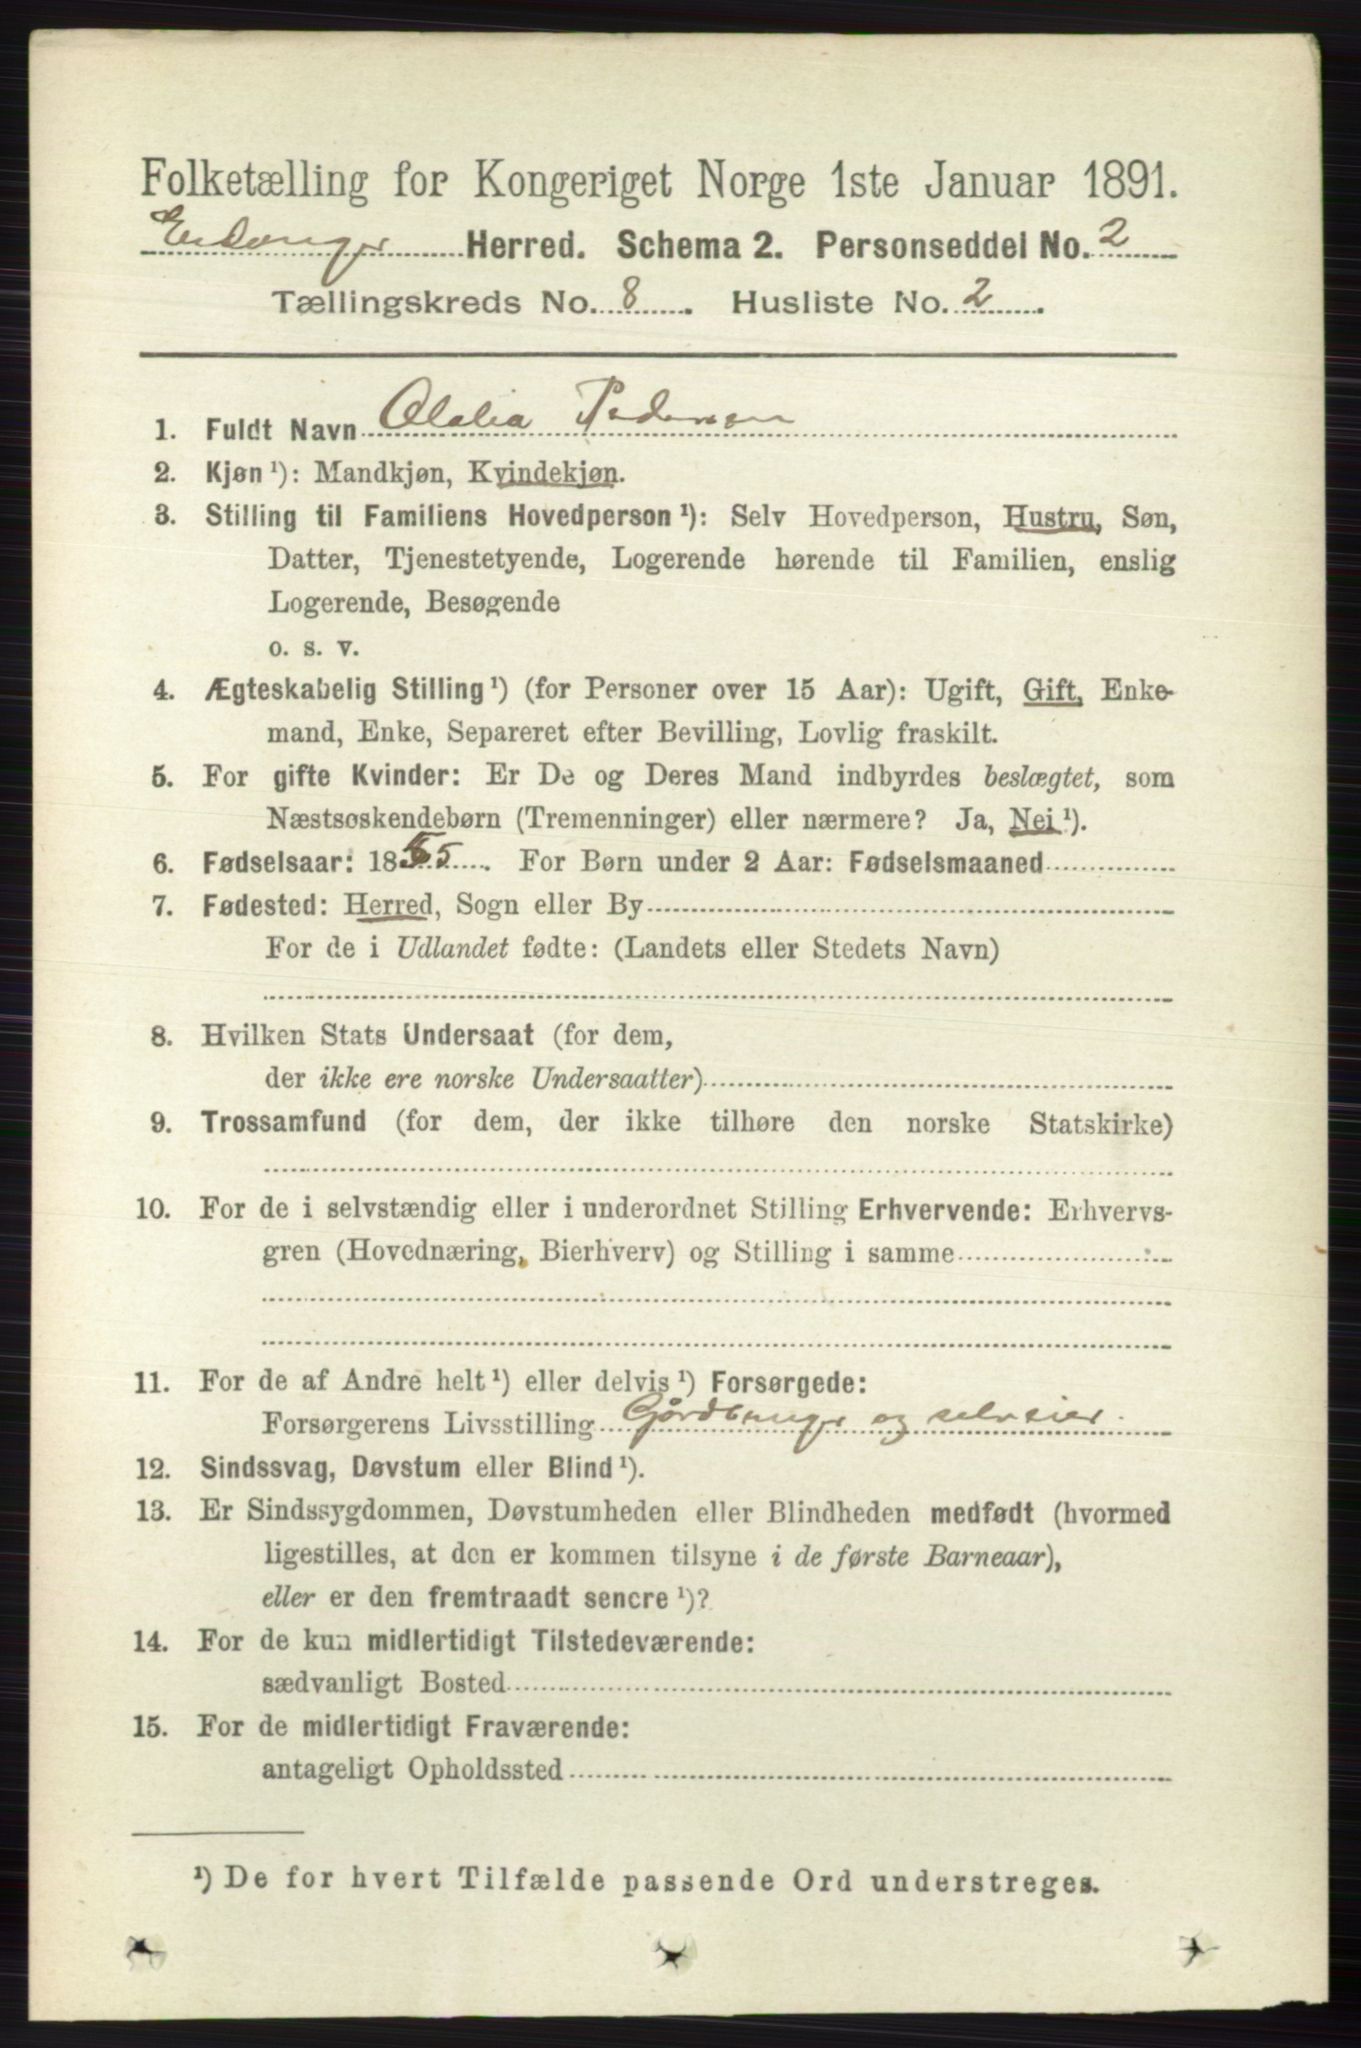 Folketælling for Kongeriget Norge 1ste Januar 1891.
Eidanger Herred. Schema 2. Personseddel No. 2
Tællingskreds No. 8. Husliste No. 2.
1. Fuldt Navn Olalia Pedersen
2. Kjøn¹): Mandkjøn, Kvindekjøn.
3. Stilling til Familiens Hovedperson¹): Selv Hovedperson, Hustru, Søn,
Datter, Tjenestetyende, Logerende hørende til Familien, enslig
Logerende, Besøgende
o. s. v.
4. Ægteskabelig Stilling¹) (for Personer over 15 Aar): Ugift, Gift, Enke-
mand, Enke, Separeret efter Bevilling, Lovlig fraskilt.
5. For gifte Kvinder: Er De og Deres Mand indbyrdes beslægtet, som
Næstsøskendebørn (Tremenninger) eller nærmere? Ja, Nei¹).
6. Fødselsaar: 1855. For Børn under 2 Aar: Fødselsmaaned
7. Fødested: Herred, Sogn eller By
For de i Udlandet fødte: (Landets eller Stedets Navn)
8. Hvilken Stats Undersaat (for dem,
der ikke ere norske Undersaatter)
9. Trossamfund (for dem, der ikke tilhøre den norske Statskirke)
10. For de i selvstændig eller i underordnet Stilling Erhvervende: Erhvervs-
gren (Hovednæring, Bierhverv) og Stilling i samme
11. For de af Andre helt¹) eller delvis¹) Forsørgede:
Forsørgerens Livsstilling Gårdbruger og selveier.
12. Sindssvag, Døvstum eller Blind¹).
13. Er Sindssygdommen, Døvstumheden eller Blindheden medfødt (hvormed
ligestilles, at den er kommen tilsyne i de første Barneaar),
eller er den fremtraadt senere¹)?
14. For de kun midlertidigt Tilstedeværende:
sædvanligt Bosted
15. For de midlertidigt Fraværende:
antageligt Opholdssted
¹) De for hvert Tilfælde passende Ord understreges.